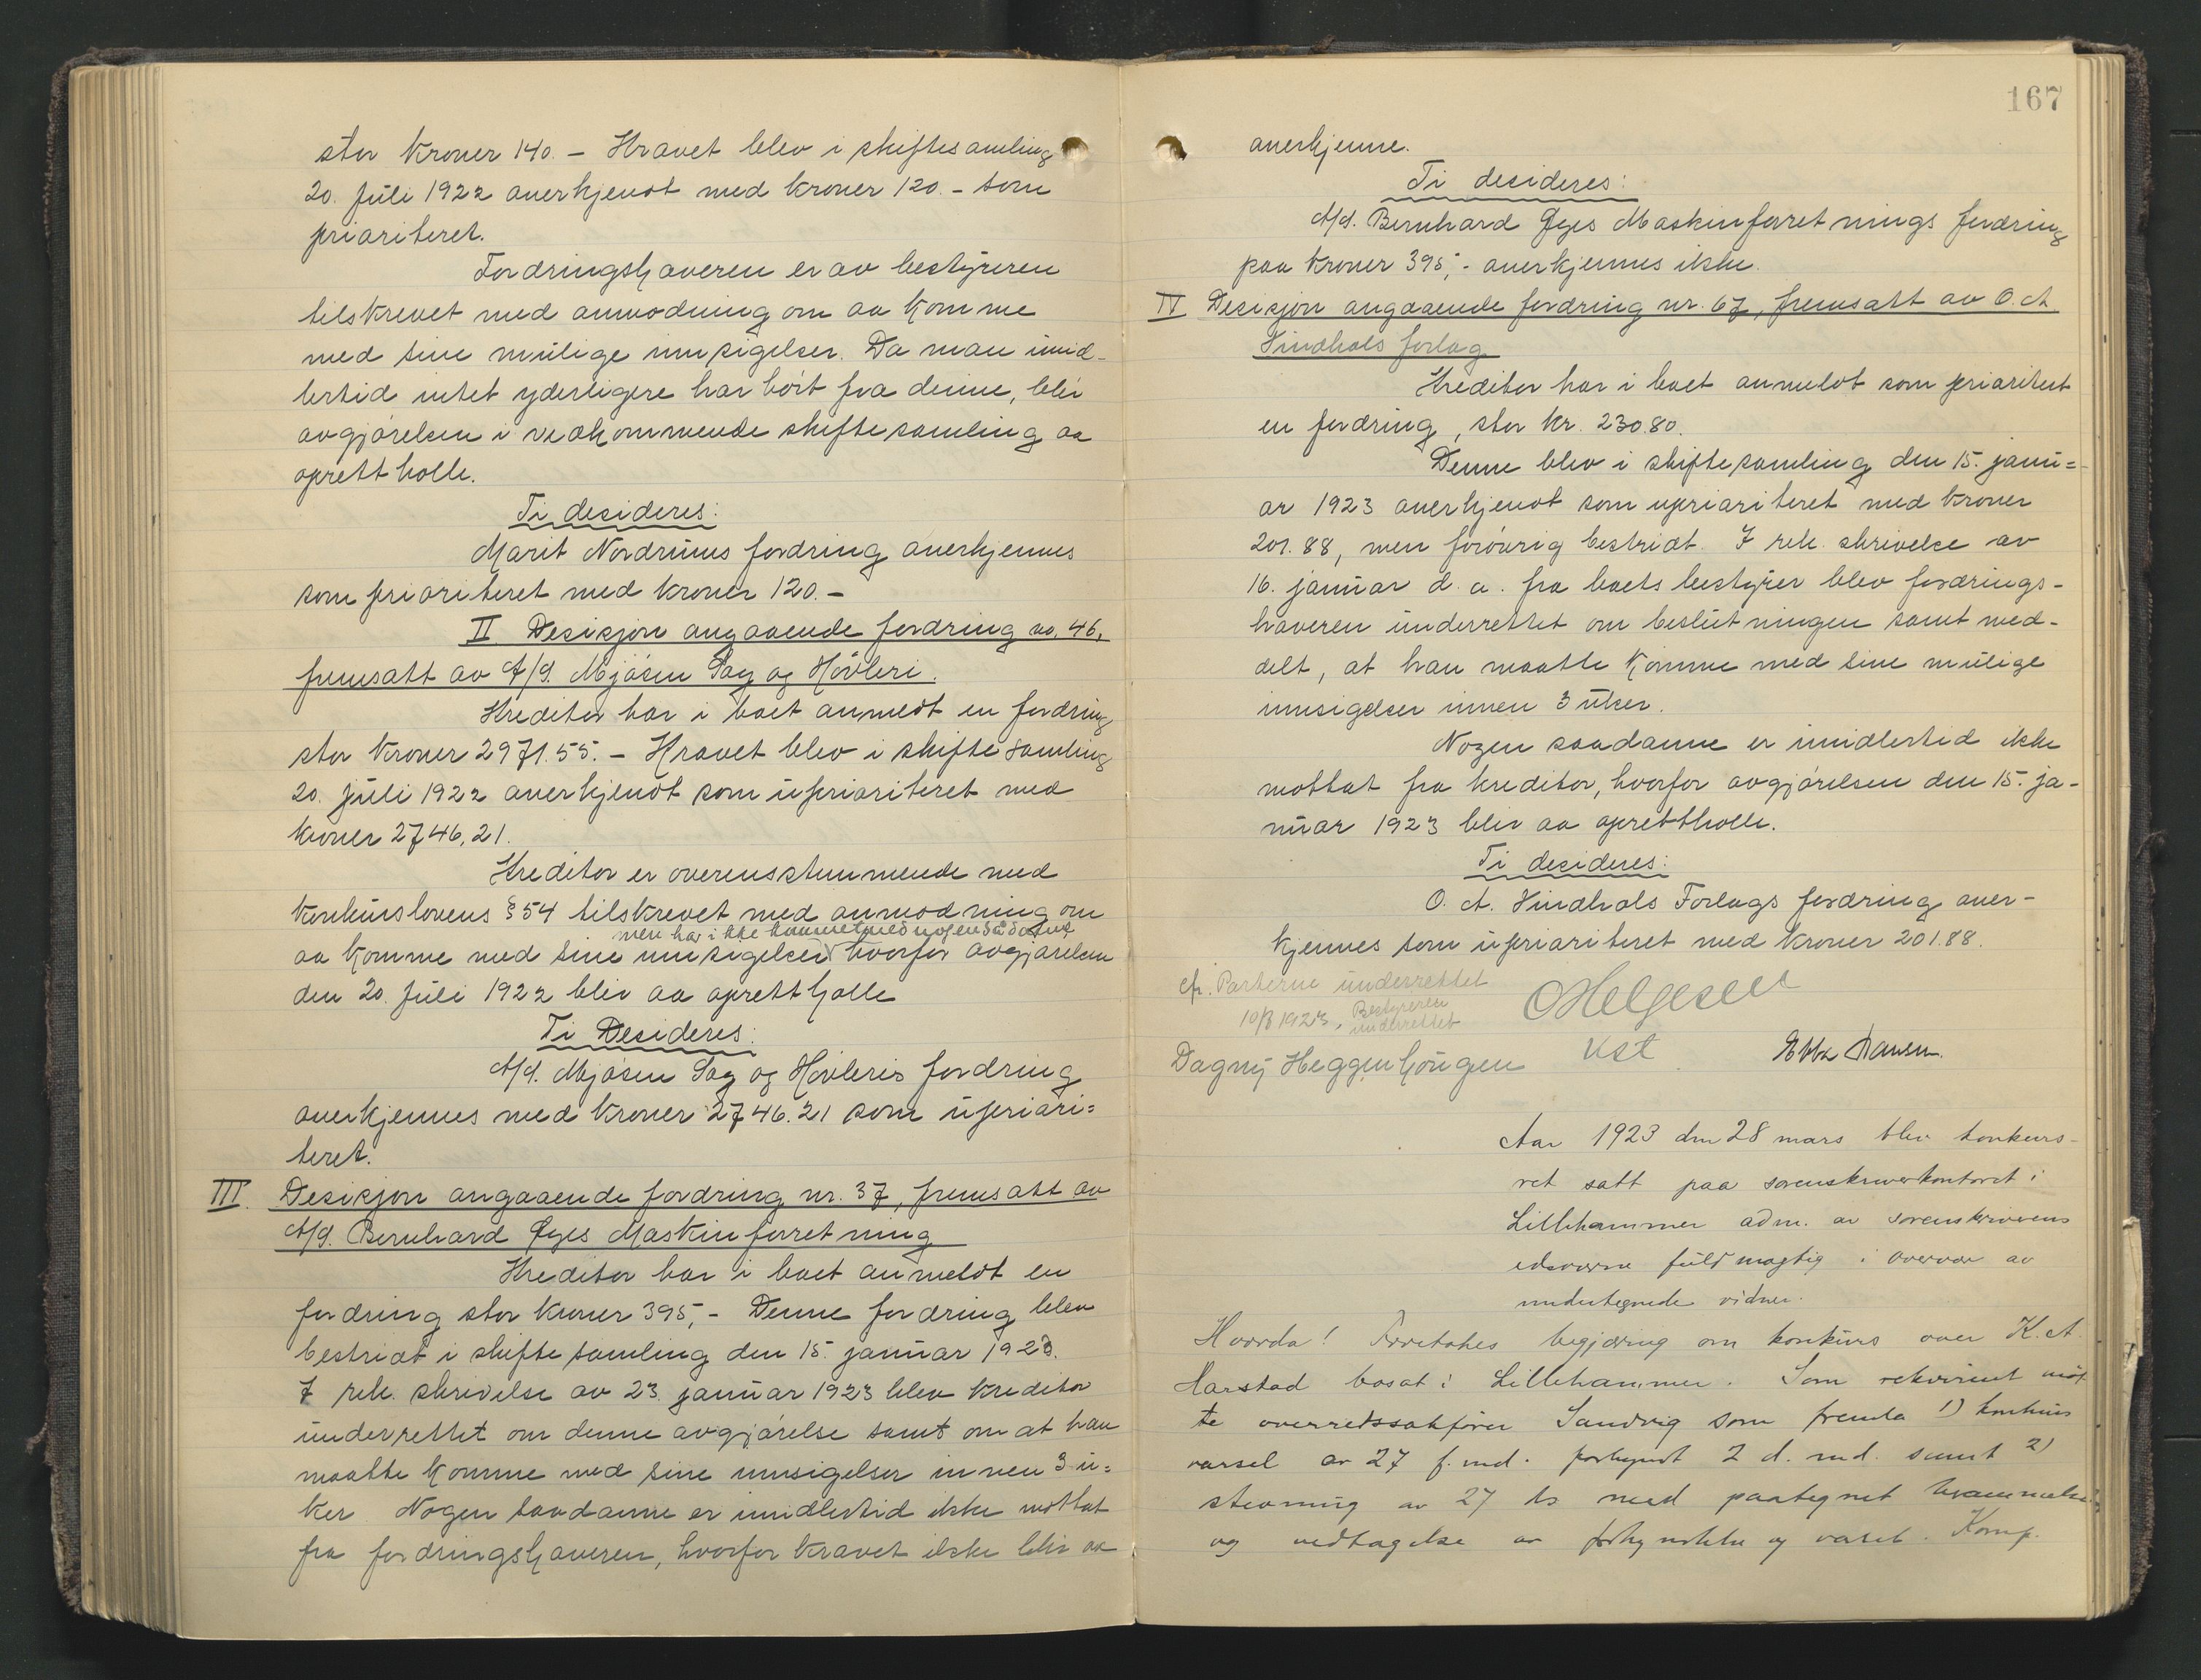 stor kroner 140. – Kravet blev i skiftesamling
20. juli 1922 anerkjendt med kroner 120. – som
prioriteret.
Fordringshaveren er av bestyreren
tilskrevet med anmodning om aa komme
med sine mulige innsigelser. Da man imid-
lertid intet yderligere har hørt fra denne, blir
avgjørelsen i vedkommende skiftesamling aa
oprettholle.
Ti desideres:
Marit Nordrums fordring anerkjennes
som prioriteret med kroner 120. –
II Desisjon angaaende fordring no. 46,
fremsatt av A/S. Mjøsen Sag og Høvleri.
Kreditor har i boet anmeldt en fordring
stor kroner 2971.55. – Kravet blev i skiftesamling
20. juli 1922 anerkjendt som uprioriteret med
kroner 2746,21.
Kreditor er overensstemmende med
konkurslovens § 54 tilskrevet med anmodning om
men har ikke kommet med nogen sådanne
aa komme med sine innsigelser hvorfor avgjørelsen
den 20. juli 1922 blir aa oprettholle
Ti Desideres:
A/S. Mjøsen Sag og Høvleris fordring
anerkjennes med kroner 2746.21 som upriori=
teret.
III. Desisjon angaaende fordring nr. 37, fremsatt av
A/S. Bernhard Øyes Maskinforretning
Kreditor har i boet anmeldt en
fordring stor kroner 395,- Denne fordring blev
bestridt i skiftesamling den 15. januar 1923.
I rek. skrivelse av 23. januar 1923 blev kreditor
underrettet om denne avgjørelse samt om at han
maatte komme med sine innsigelser innen 3 u=
ker. Nogen saadanne er imidlertid ikke mottat
fra fordringshaveren, hvorfor kravet ikke blir aa
167
anerkjenne.
Ti desideres:
A/S. Bernhard Øyes Maskinforretnings fordring
paa kroner 395,- anerkjennes ikke.
IV Desisjon angaaende fordring nr. 67, fremsatt av O. A.
Vindhols forlag
Kreditor har i boet anmeldt som prioritert
en fordring, stor kr. 230.80.
Denne blev i skiftesamling den 15. janu=
ar 1923 anerkjendt som uprioriteret med kroner
201.88, men forøvrig bestridt. I rek. skrivelse av
16. januar d. a. fra boets bestyrer blev fordrings-
haveren underrettet om beslutningen samt med-
delt, at han maatte komme med sine mulige
innsigelser innen 3 uker.
Nogen saadanne er imidlertid ikke
mottat fra kreditor, hvorfor avgjørelsen den 15. ja-
nuar 1923 blir aa oprettholle.
Ti desideres:
O. A. Vindhols Forlags fordring aner-
kjennes som uprioriteret med kroner 201.88.
Parterne underrettet
10/3 1923, Bestyreren
underrettet
O Helgesen
Kst
Dagny Heggenhougen
Ebba Hansen.
Aar 1923 den 28 mars blev konkurs-
ret satt paa sorenskriverkontoret i
Lillehammer adm. av sorenskriverens
edsvorne fuldmægtig i overvær av
undertegnede vidner.
Hvorda! Foretokes begjæring om konkurs over K. A.
Harstad bosat i Lillehammer. Som rekvirent møt-
te overretssakfører Sandvig som fremla 1) konkurs
varsel av 27 f. md. forkyndt 2 d. md. samt 2)
stevning av 27 ds med paategnet berammelse
og vedtagelse av forkyndelse og varsel. Komp.